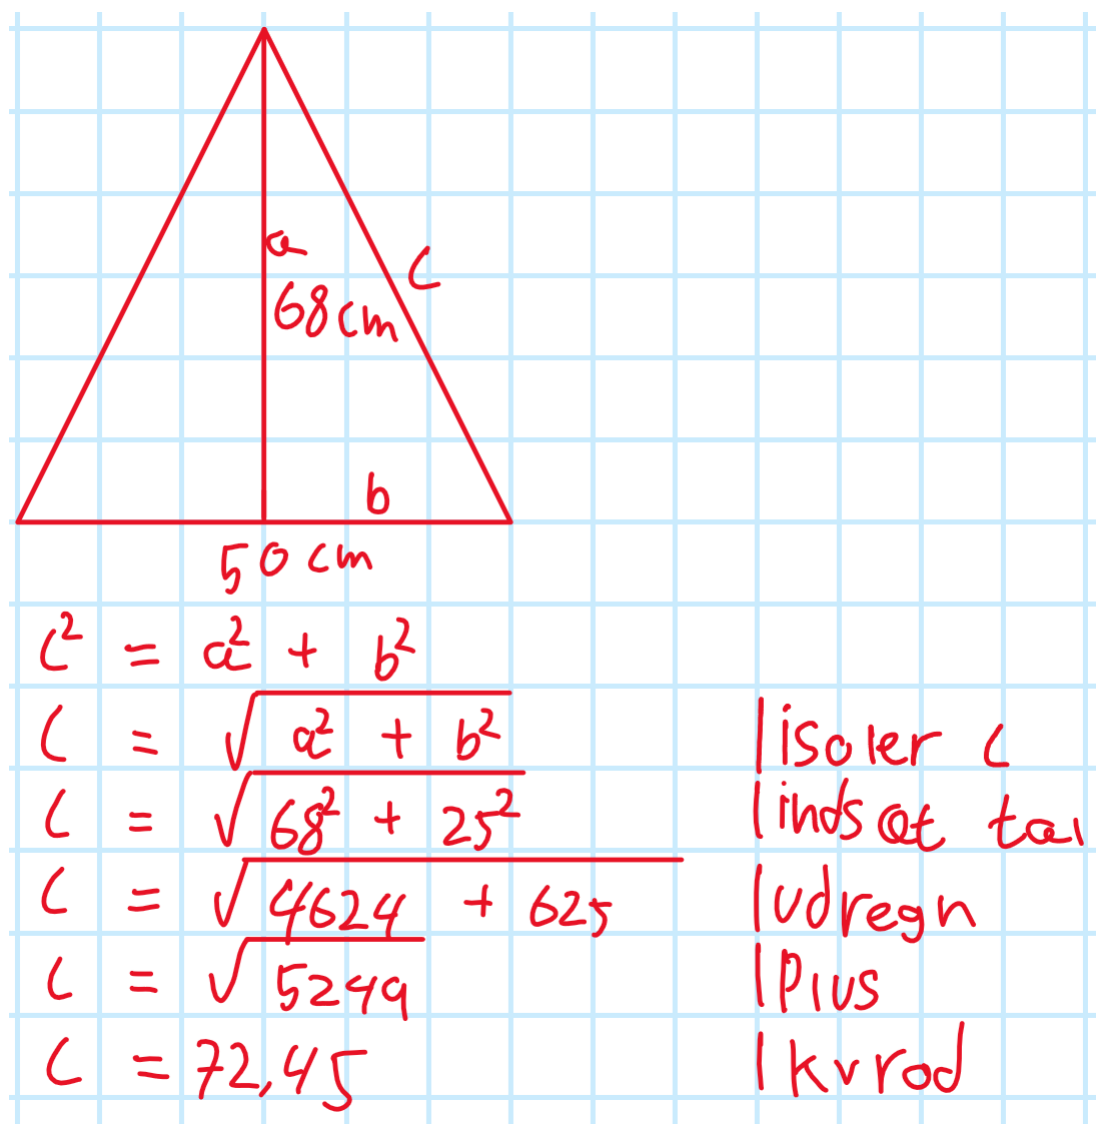 a
c
68 cm
b
50 cm
c² = a² + b²
c = √(a² + b²) | isoler c
c = √(68² + 25²) | indsæt tal
c = √(4624 + 625) | udregn
c = √5249 | Plus
c = 72,45 | kvrod